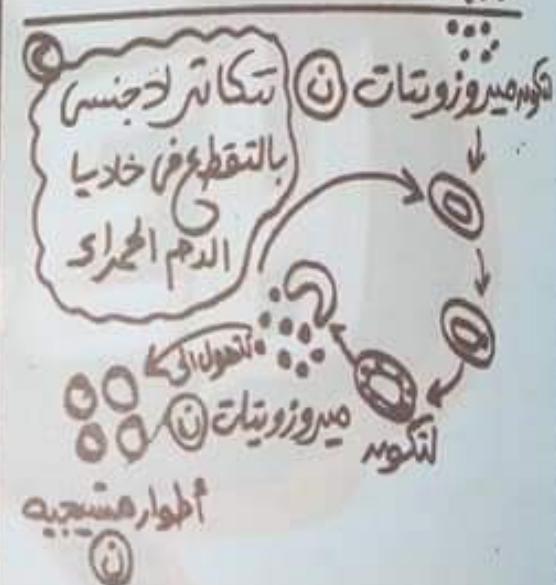 لتكوين ميروزويتات ن
تتكاثر لاجنسى
بالتقطع فى خلايا
الدم الحمراء
تتحول الى
ميروزويتات ن
لتكوين
أطوار مشيجيه
ن